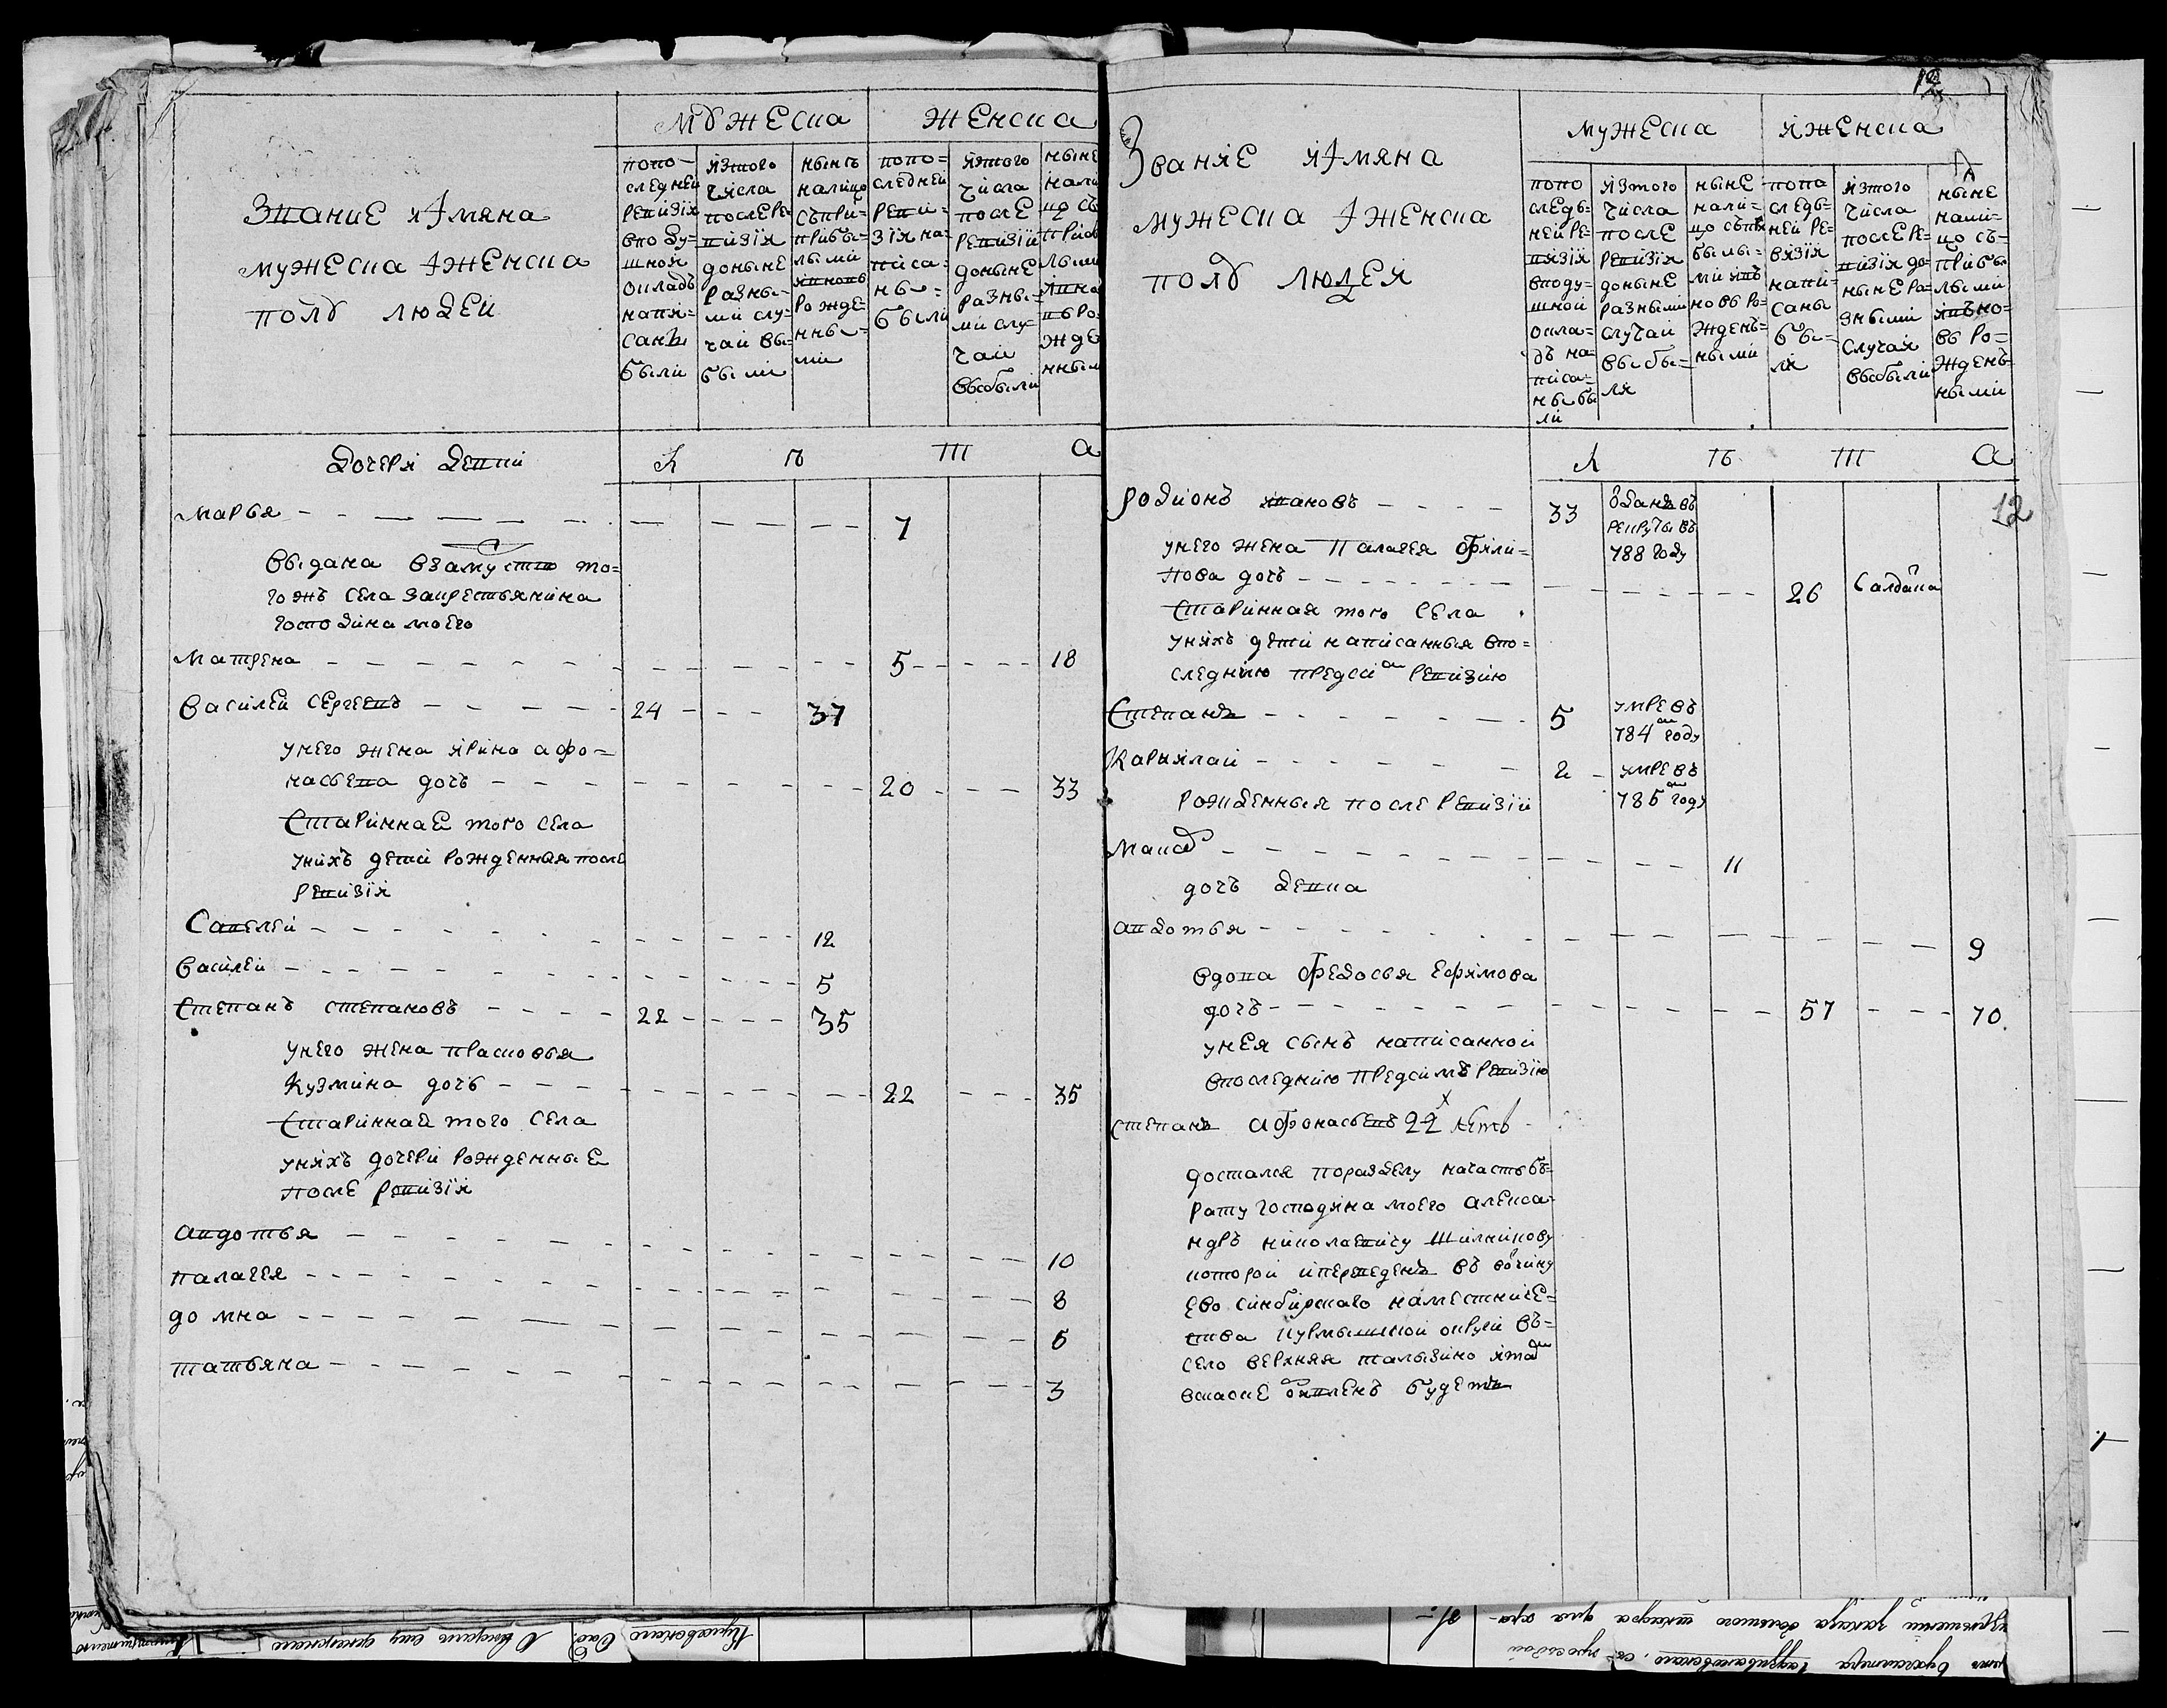 Звание иімяна
мужеска іженска
полу людей
мужеска
женска
попо-
следней
ревизіи
вподу=
шной
окладъ
напи=
саны
были
изтого
числа
послере
визіи
доныне
разны=
ми слу=
чаи вы=
были
ныне
налицо
съпри=
прибы=
лыми
ивновь
рожде=
нны=
ми
попо=
следней
реви=
зіи на=
писа=
ны=
были
изтого
числа
после
ревизіи
доныне
разны=
ми слу=
чаи
выбыли
л е т а
дочери девки
марья 7
выдана взамуство то=
гожъ села закрестьянина
господина моего
матрена 5 18
василей сергеевъ 24 37
унего жена ирина афо=
насьева дочь 20 33
Стариннае того села
унихъ дети рожденная после
ревизіи
Савелей 12
василей 5
Степанъ степановъ 22 35
унего жена прасковья
Кузмина дочь 22 35
Стариннае того села
унихъ дочери рожденные
после ревизіи
авдотья 10
палагея 8
домна 6
татьяна 3
12
Званіе иімяна
мужеска іженска
полу людей
мужеска
иженска
попо
следь=
ней ре=
визіи
вподу=
шной
окла=
дъ на=
писа=
ны бы
ли
изтого
числа
после
ревизіи
доныне
разными
случаи
выбы=
ли
ныне
нали=
цо съпри
былы=
ми ивъ
новь ро=
жденъ=
ными
попо
следь=
ней ре=
визіи
напи=
саны
бы=
ли
изтого
числа
после ре=
визіи до=
ныне ра=
зными
случаи
выбыли
ныне
нали=
цо съ=
прибы
лыми
ивъно=
вь ро=
жденъ=
ными
л е т а
родионъ ивановъ 33 отданъ въ
рекруты въ
788 году
12
унего жена Палагея фили=
пова дочь 26 Салдатка
Старинная того села
унихъ дети написанныя впо=
следнию предсим ревизию
Степанъ 5 умре въ
784 м году
Карнилай 2 умре въ
785 м году
рожденныя после ревизіи
макаръ 11
дочь девка
авдотья 9
вдова федосья ефимова
дочь 57 70
унея сынъ написанной
впоследнию предсимъ ревизію
степанъ афонасьевъ 22 летъ
достался поразделу начасть бъ=
рату господина моего алекса=
ндръ николаевичу Шилникову
которой ипереведенъ въ вотчину
ево синбирскаго наместниче=
ства курмышской округи въ=
село верхняя талызино итам
всказке оявленъ будетъ